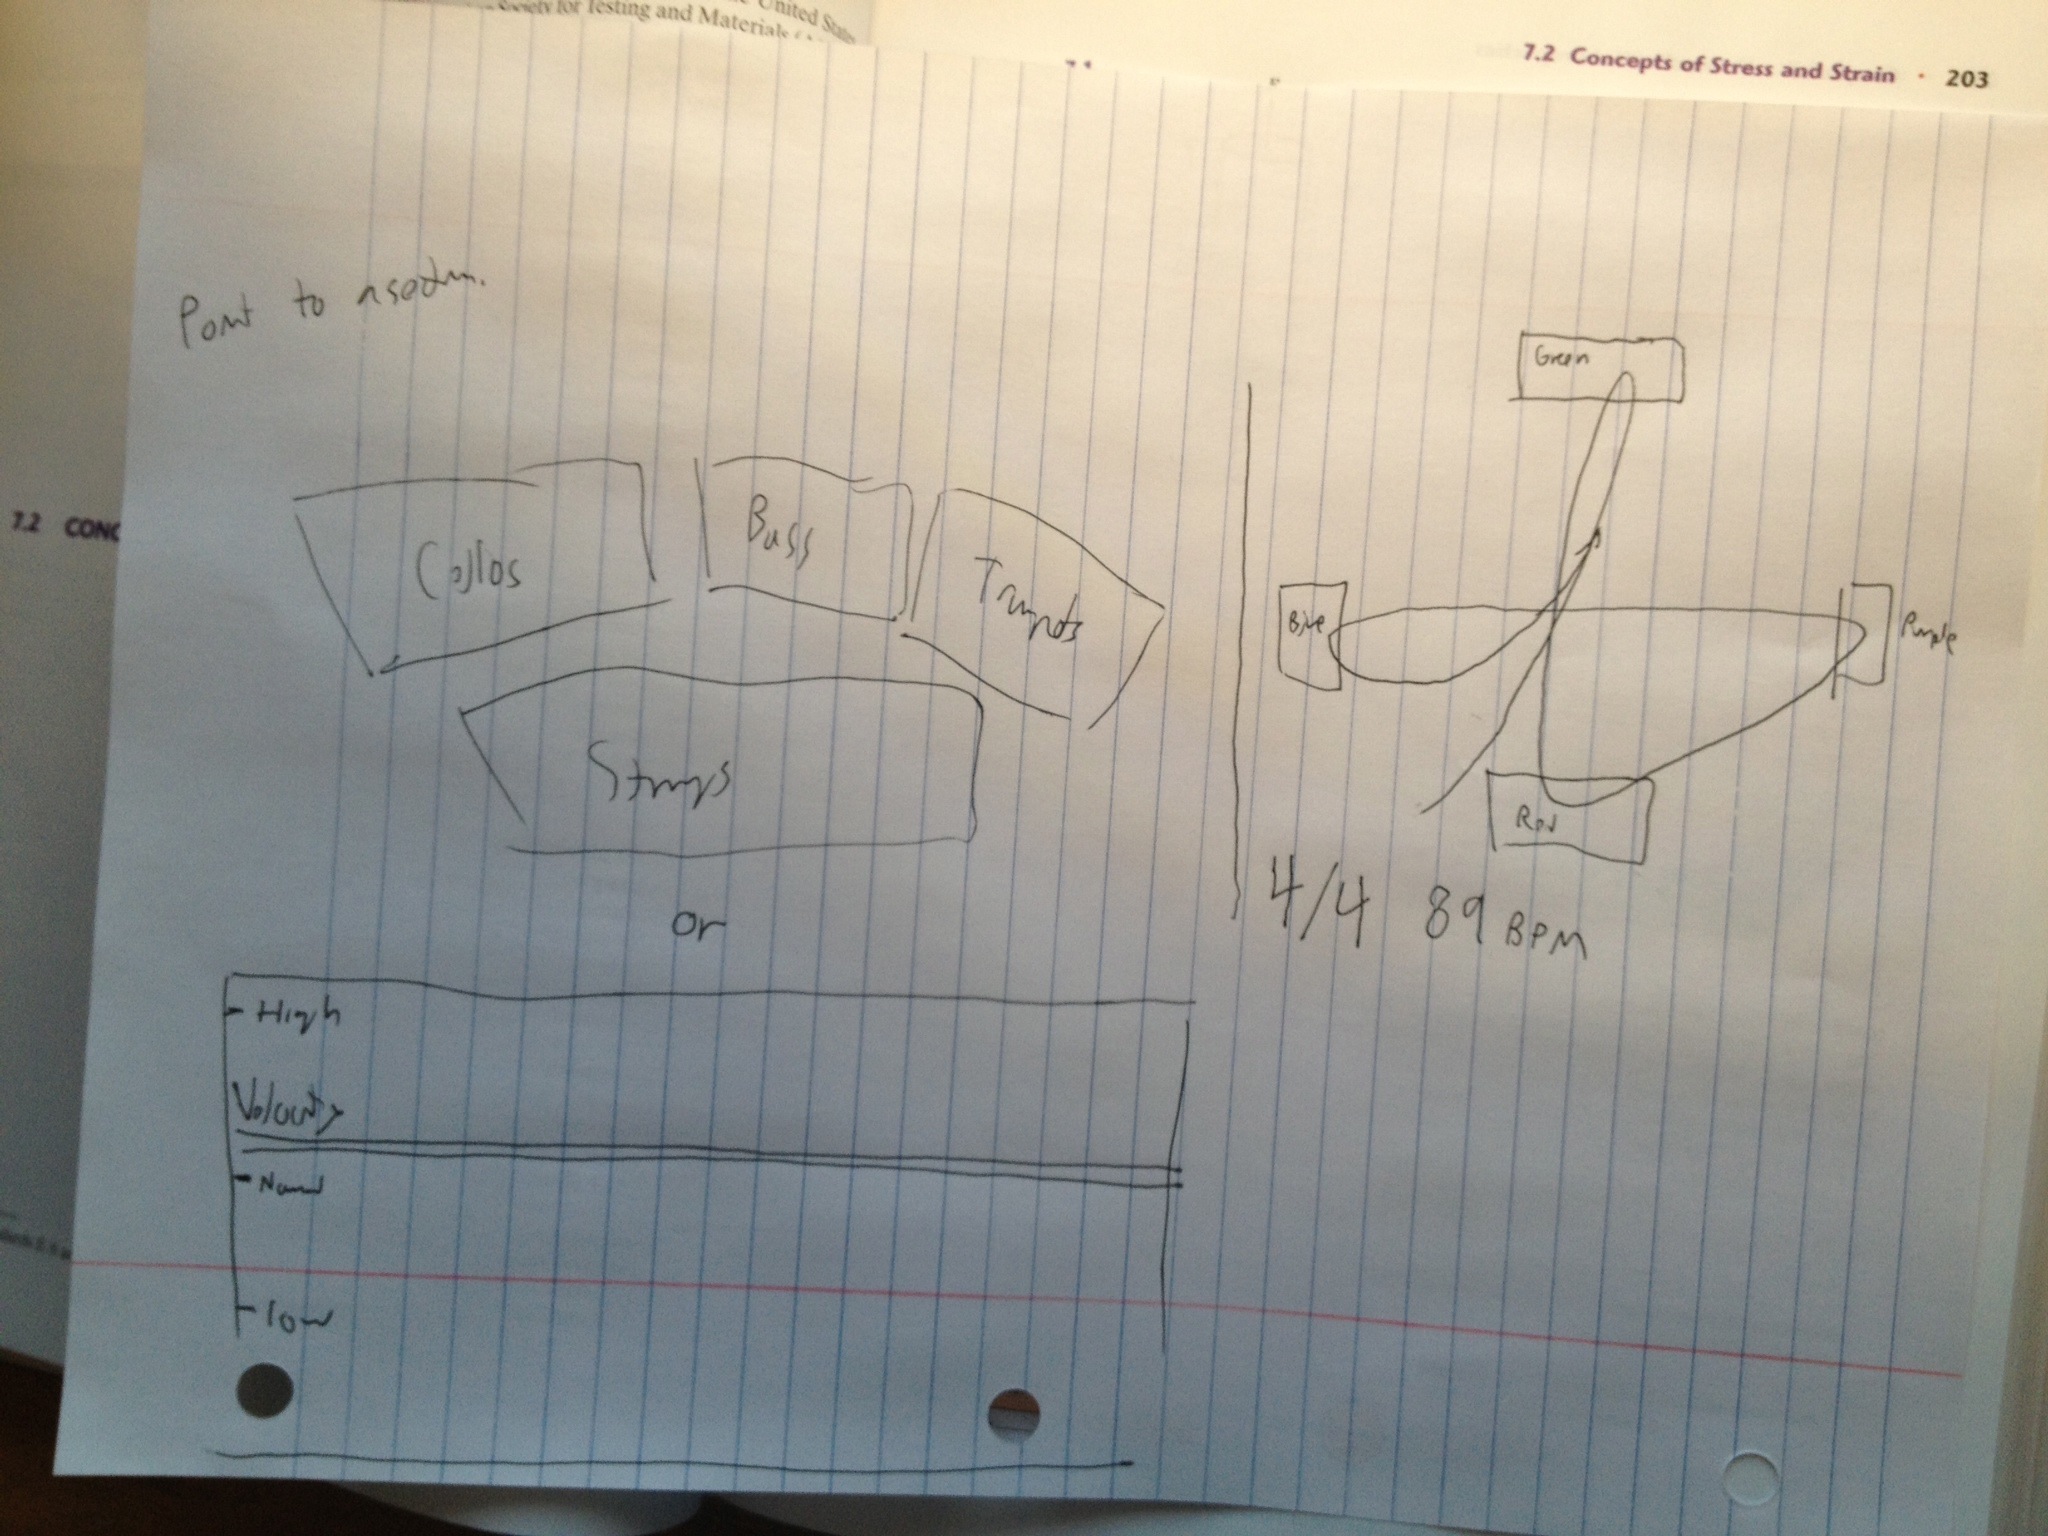 Society for Testing and Materials
United States
7.2 Concepts of Stress and Strain · 203
7.2 CONC
Point to a section.
Cellos
Bass
Trumpets
Strings
or
High
Velocity
low
Green
Blue
Purple
Red
4/4 89 BPM